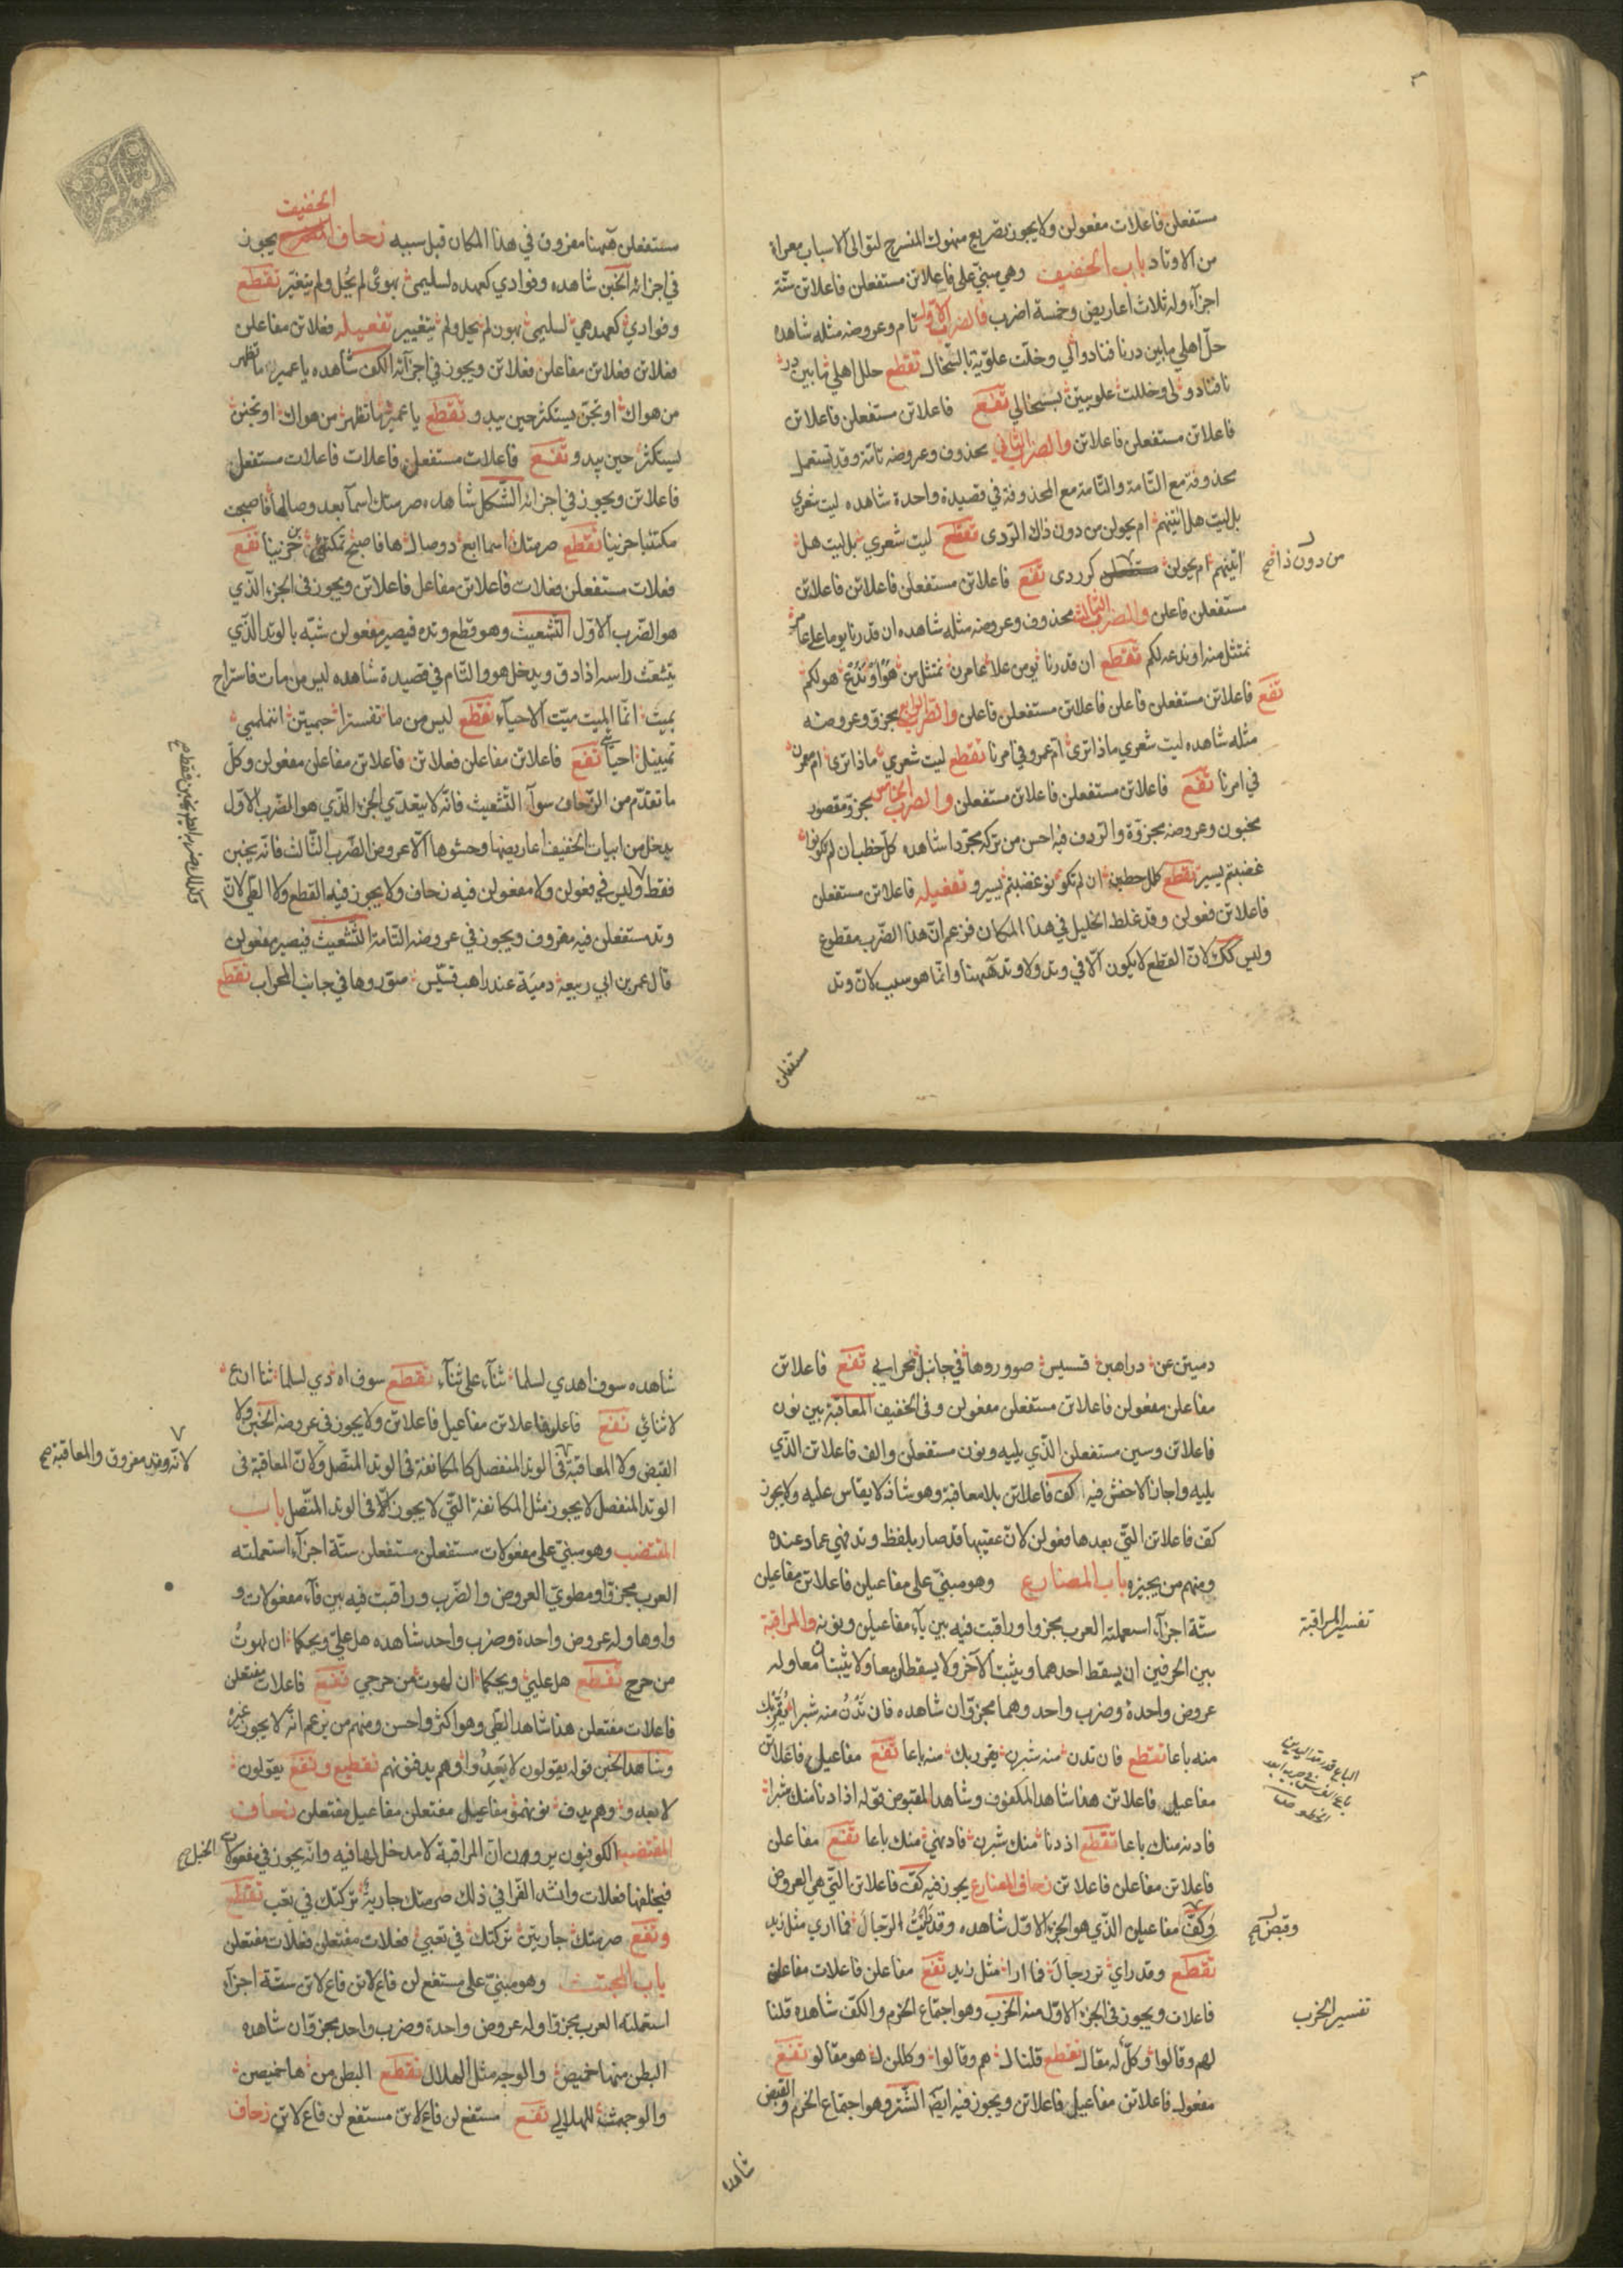 مستفعلن فاعلات مفعولن ولا يجوز تصريع منهوك المنسرح لتوالى الاسباب معراة
من الاوتاد باب الخفيف وهي مبنيّ على فاعلاتن مستفعلن فاعلاتن ستّة
اجزآء وله ثلاث اعاريض وخمسة اضرب فالضرب الاوّل تام وعروضه مثله شاهده
حلّ اهلي ما بين درنا فنادوا لي وحلّت علويّة بالسّخال تقطع حلل اهلي ما بين در
نا فنادو لى وحللت علوييتن بسسخالي تفع فاعلاتن مستفعلن فاعلاتن
فاعلاتن مستفعلن فاعلاتن والضرب الثّاني محذوف وعروضه تامّة وقد يستعمل
محذوفة مع التّامة والتّامة مع المحذوفة في قصيدة واحدة شاهده ليت شعري
بل ليت هل اتينهم ام يحولن من دون ذاك الرّدى تقطع ليت شعري بل ليت هل
اتينهم ام يحولن كرردى تفع فاعلاتن مستفعلن فاعلاتن فاعلاتن
من دون ذا صح
مستفعلن فاعلن والضرب الثالث محذوف وعروضه مثله شاهده ان قدرنا يوما على عامر
نمتثل منه او ندعه لكم تقطع ان قدرنا يومن علا عامرن نمتثل من هو او ندع هو لكم
تفع فاعلاتن مستفعلن فاعلن فاعلاتن مستفعلن فاعلن والضرب الرابع مجزوّ وعروضه
مثله شاهده ليت شعري ماذا ترى ام عمرو في امرنا تقطع ليت شعري ماذا ترى ام معمرن
في امرنا تفع فاعلاتن مستفعلن فاعلاتن مستفعلن والضرب الخامس مجزوّ مقصور
مخبون وعروضه مجزوّة والرّدف فيه احسن من تركه مجرّدا شاهده كلّ خطب ان لم تكونوا
غضبتم يسير تقطع كلل خطبن ان لم تكو نو غضبتم يسيرو تفعيله فاعلاتن مستفعلن
فاعلاتن فعولن وقد غلط الخليل في هذا المكان فزعم انّ هذا الضّرب مقطوع
وليس كك لانّ القطع لا يكون الّا في وتد ولا وتد هٰهنا وانّما هو سبب لانّ وتد
مستفعلن
مستفعلن هٰهنا مفروق في هذا المكان قبل سببه زحاف الخفيف يجوز
في اجزائه الخبن شاهده وفوادي كعهده لسليمى بهوى لم يحل ولم يتغيّر تقطع
وفوادي كعهدهي لسليمى بهون لم يحل ولم يتغيير تفعيله فعلاتن مفاعلن
فعلاتن فعلاتن مفاعلن فعلاتن ويجوز في اجزآئه الكف شاهده يا عمير ما تظهر
من هواك او تجنّ يستكثر حين يبدو تقطع يا عمير ما تظهر من هواك او تجنن
يستكثر حين يبدو تفع فاعلات مستفعلن فاعلات فاعلات مستفعل
فاعلاتن ويجوز في اجزائه الشّكل شاهده صرمتك اسمآ بعد وصالها فاصبحت
مكتئبا حزينا تقطع صرمتك اسما ابع دوصال ها فاصبح تمكتئبن حزينا تفع
فعلات مستفعلن فعلات فاعلاتن مفاعل فاعلاتن ويجوز فى الجزء الّذي
هو الضّرب الاوّل التّشعيث وهو قطع وتده فيصير مفعولن شبّه بالوتد الّذي
يتشعّث راسه اذا دق ويدخل هو والتّام في قصيدة شاهده ليس من مات فاستراح
بميت انّما الميت ميّت الاحيآء تقطع ليس من ما تفسترا حبميتن اننملمي
تمييتل احيآئي تفع فاعلاتن مفاعلن فعلاتن فاعلاتن مفاعلن مفعولن وكلّ
ما تقدّم من الزّحاف سوآء التّشعيث فانّه لا يتعدّي الجزء الّذي هو الضّرب الاوّل
يدخل من ابيات الخفيف اعاريضها وحشوها الّا عروض الضّرب الثّالث فانّه يخبن
فقط وليس في فعولن ولا مفعولن فيه زحاف ولا يجوز فيه القطع ولا الطّي لانّ
وكذلك ضربه الرابع يخبن فقط صح
وتد مستفعلن فيه مفروق ويجوز في عروضه التّامة التّشعيث فيصير مفعولن
قال عمر بن ابي ربيعة دمية عند راهب قسّيس صوّروها في جانب المحراب تقطع
دميتن عن دراهبن قسسيس صووروها في جانبل محرابي تفع فاعلاتن
مفاعلن مفعولن فاعلاتن مستفعلن مفعولن وفى الخفيف المعاقبة بين نون
فاعلاتن وسين مستفعلن الّذي يليه ونون مستفعلن والف فاعلاتن الّذي
يليه واجاز الاخفش فيه كفّ فاعلاتن بلا معاقبة وهو شاذ لا يقاس عليه ولا يجوز
كفّ فاعلاتن التّي بعدها فعولن لانّ عقيبها قد صار بلفظ وتد فهي عماد عنده
ومنهم من يجيزه باب المضارع وهو مبنيّ على مفاعيلن فاعلاتن مفاعيلن
ستّة اجزآء استعملته العرب مجزوا وراقبت فيه بين يآء مفاعيلن ونونه والمراقبة
تفسير المراقبة
بين الحرفين ان يسقط احدهما ويثبت الآخر ولا يسقطان معا ولا يثبتان معا وله
عروض واحدة وضرب واحد وهما مجزوّان شاهده فان تدن منه شبرا يقرّبك
منه باعا تقطع فان تدن منه شبرن يقرربك منه باعا تفع مفاعيل فاعلاتن
مفاعيل فاعلاتن هذا شاهد المكفوف وشاهد المقبوض قوله اذا دنا منك شبرا
فادنه منك باعا تقطع اذ دنا منك شبرن فادنهي منك باعا تفع مفاعلن
فاعلاتن مفاعلن فاعلاتن زحاف المضارع يجوز فيه كفّ فاعلاتن التّي هي العروض
وكفّ مفاعيلن الّذي هو الجزء الاوّل شاهده وقد رايت الرّجال فما ارى مثل زيد
وقبض صح
تقطع وقد راي تررجال فما ارا مثل زيد تفع مفاعلن فاعلات مفاعلن
فاعلات ويجوز فى الجزء الاوّل منه الخرب وهو اجتماع الخرم والكفّ شاهده قلنا
تفسير الخرب
لهم وقالوا وكلّ له مقال تقطع قلنا ل هم وقالوا وكللن ل هو مقالو تفع
مفعول فاعلاتن مفاعيل فاعلاتن ويجوز فيه ايضا الشّتر وهو اجتماع الخرم والقبض
شاهده
شاهده سوف اهدي لسلما ثنآء على ثنآء تقطع سوف اه دي لسلما ثنا ان ع
لا ثنائي تفع فاعلن فاعلاتن مفاعيل فاعلاتن ولا يجوز في عروضه الخبن ولا
القبض ولا المعاقبة فى الوتد المنفصل كالمكانفة في الوتد المتّصل ولانّ المعاقبة فى
لانّه وتد مفروق والمعاقبة صح
الوتد المنفصل لا يجوز مثل المكانفة التّي لا يجوز الّا فى الوتد المتّصل باب
المقتضب وهو مبنيّ على مفعولات مستفعلن مستفعلن ستّة اجزآء استعملته
العرب مجزوّا ومطويّ العروض والضّرب وراقبت فيه بين فآء مفعولات و
واوها وله عروض واحدة وضرب واحد شاهده هل عليّ ويحكما ان لهوت
من حرج تقطع هل عليي ويحكما ان لهوت من حرجي تفع فاعلات مفتعلن
فاعلات مفتعلن هذا شاهد الطّي وهو اكثر واحسن ومنهم من زعم انّه لا يجوز غيره
وشاهد الخبن قوله يقولون لا بعدوا وهم يدفنونهم تقطيع وتفع يقولون
لا بعدو وهم يدف نونهمو مفاعيل مفتعلن مفاعيل مفتعلن زحاف
المقتضب الكوفيون يرون انّ المراقبة لا مدخل لها فيه وانّه يجوز في مفعولات الخبل صح
فيخلفها فعلات وانشد الفرّا في ذلك صرمتك جارية تركتك في تعب تقطع
وتفع صرمتك جاريتن تركتك في تعبي فعلات مفتعلن فعلات مفتعلن
باب المجتث وهو مبنيّ على مستفع لن فاع لاتن فاع لاتن ستّة اجزآء
استعملته العرب مجزوّا وله عروض واحدة وضرب واحد مجزوّان شاهده
البطن منها خميص والوجه مثل الهلال تقطع البطن من ها خميصن
والوجهمثـ للهلالي تفع مستفع لن فاع لاتن مستفع لن فاع لاتن زحاف